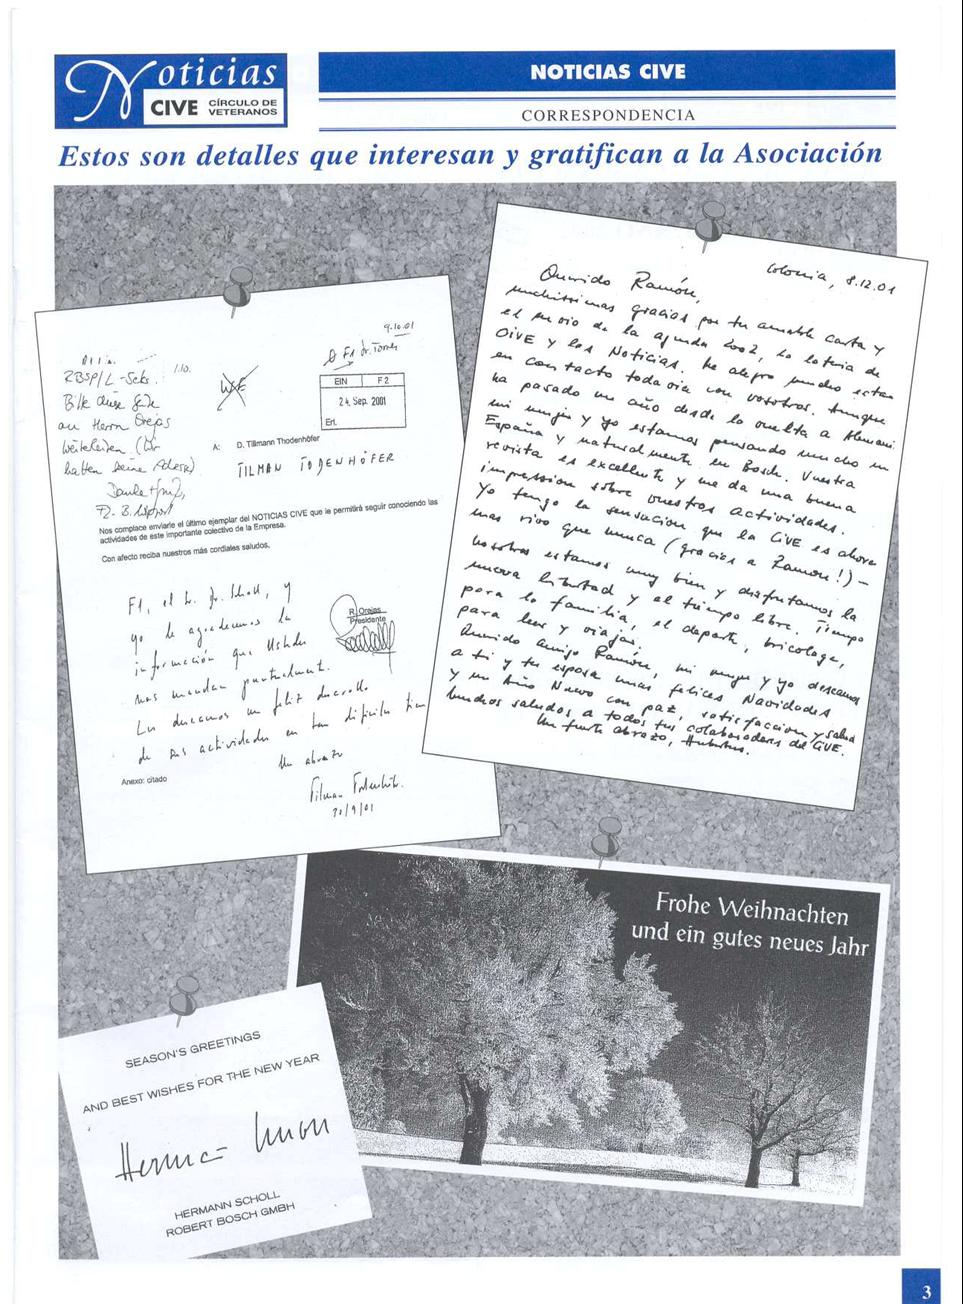 Noticias
CIVE CÍRCULO DE VETERANOS
NOTICIAS CIVE
CORRESPONDENCIA
Estos son detalles que interesan y gratifican a la Asociación
9.10.01
RBSP/L-Sekr. 1.10.
Bitte diese Seite
an Herrn Orejas
weiterleiten (Wir
hatten seine Adresse)
EIN F2
24. Sep. 2001
Erl.
A: D. Tillmann Thodenhöfer
TILMAN TODENHÖFER
Nos complace enviarle el último ejemplar del NOTICIAS CIVE que le permitirá seguir conociendo las
actividades de este importante colectivo de la Empresa.
Con afecto reciba nuestros más cordiales saludos,
F1, el Sr. Dr. Scholl, y
yo le agradecemos la
información que Ustedes
nos mandan puntualmente.
Les deseamos un feliz desarrollo
de sus actividades en tan difíciles
Un abrazo
R. Orejas
Presidente
Anexo: citado
20/9/01
Colonia, 8.12.01
Querido Ramón,
muchissimas gracias por tu amable carta y
el envio de la agenda 2002, la loteria de
CIVE y las Noticias. Me alegro mucho estar
en contacto todavia con vosotros. Aunque
ha pasado un año desde la vuelta a Alemania
mi mujer y yo estamos pensando mucho en
España y naturalmente en Bosch. Vuestra
revista es excellente y me da una buena
impression sobre vuestras actividades.
Yo tengo la sensacion que la CIVE es ahora
mas vivo que nunca (gracias a Ramon!) –
Nosotros estamos muy bien y disfrutamos la
nueva libertad y el tiempo libre. Tiempo
para la familia, el deporte, bricolage,
para leer y viajar.
Querido Amigo Ramón, mi mujer y yo deseamos
a ti y tu esposa unas felices Navidades
y un Año Nuevo con paz, satisfaccion y salud
Muchos saludos a todos tus colaboradores del CIVE.
Un fuerte abrazo,
Frohe Weihnachten
und ein gutes neues Jahr
SEASON'S GREETINGS
AND BEST WISHES FOR THE NEW YEAR
HERMANN SCHOLL
ROBERT BOSCH GMBH
3